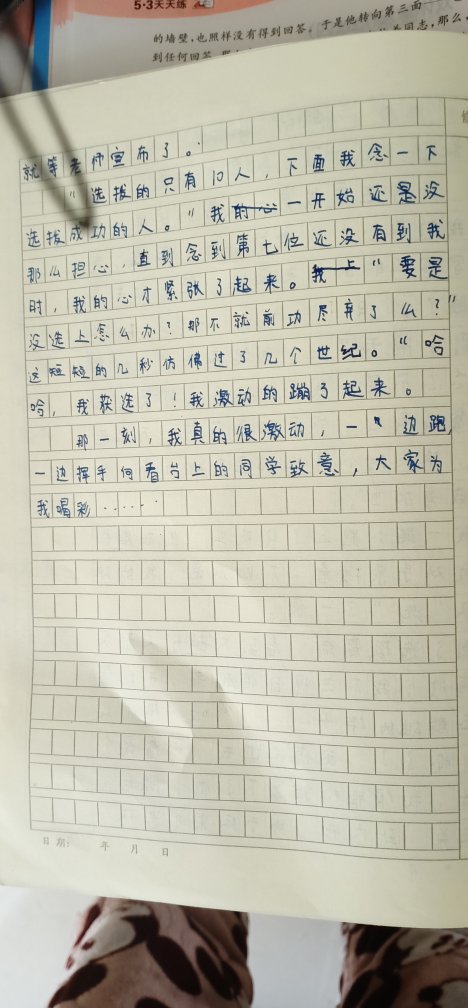 5·3天天练
的墙壁,也照样没有得到回答。于是他转向第三面
同志,那么,
到任何回答
就等老师宣布了。
“选拔的只有10人,下面我念一下
选拔成功的人。”我的心一开始还是没
那么担心,直到念到第七位还没有到我
时,我的心才紧张了起来。我上“要是
没选上怎么办?那不就前功尽弃了么?”
这短短的几秒仿佛过了几个世纪。“哈
哈,我获选了!我激动的蹦了起来。
那一刻,我真的很激动,一边跑,
一边挥手向看台上的同学致意,大家为
我喝彩……
日期: 年 月 日